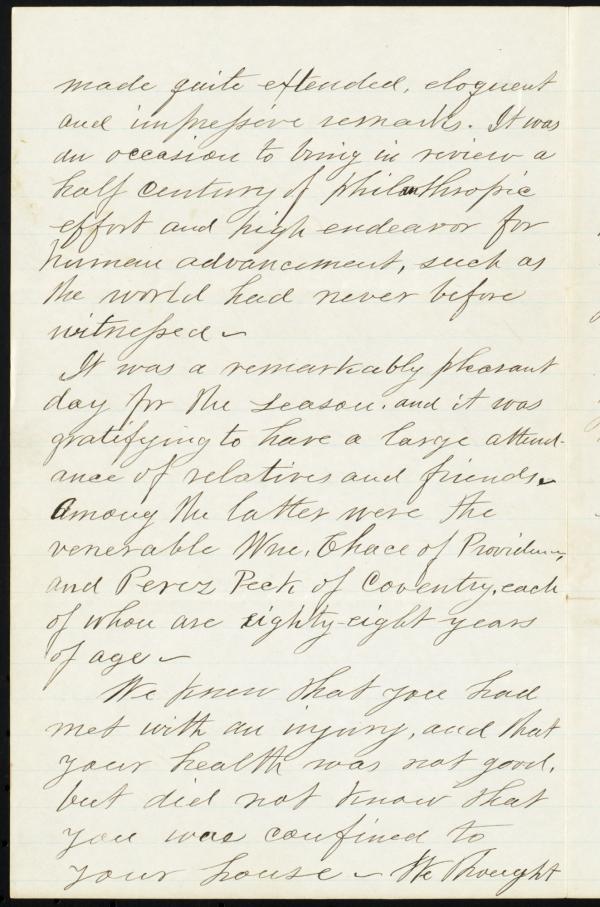 made quite extended, eloquent
and impressive remarks. It was
an occasion to bring in review a
half century of philanthropic
effort and high endeavor for
human advancement, such as
the world had never before
witnessed –
It was a remarkably pleasant
day for the season, and it was
gratifying to have a large attend-
ance of relatives and friends.
Among the latter were the
venerable Wm. Chace of Providence,
and Perez Peck of Coventry, each
of whom are eighty-eight years
of age –
We knew that you had
met with an injury, and that
your health was not good,
but did not know that
you was confined to
your house – We thought